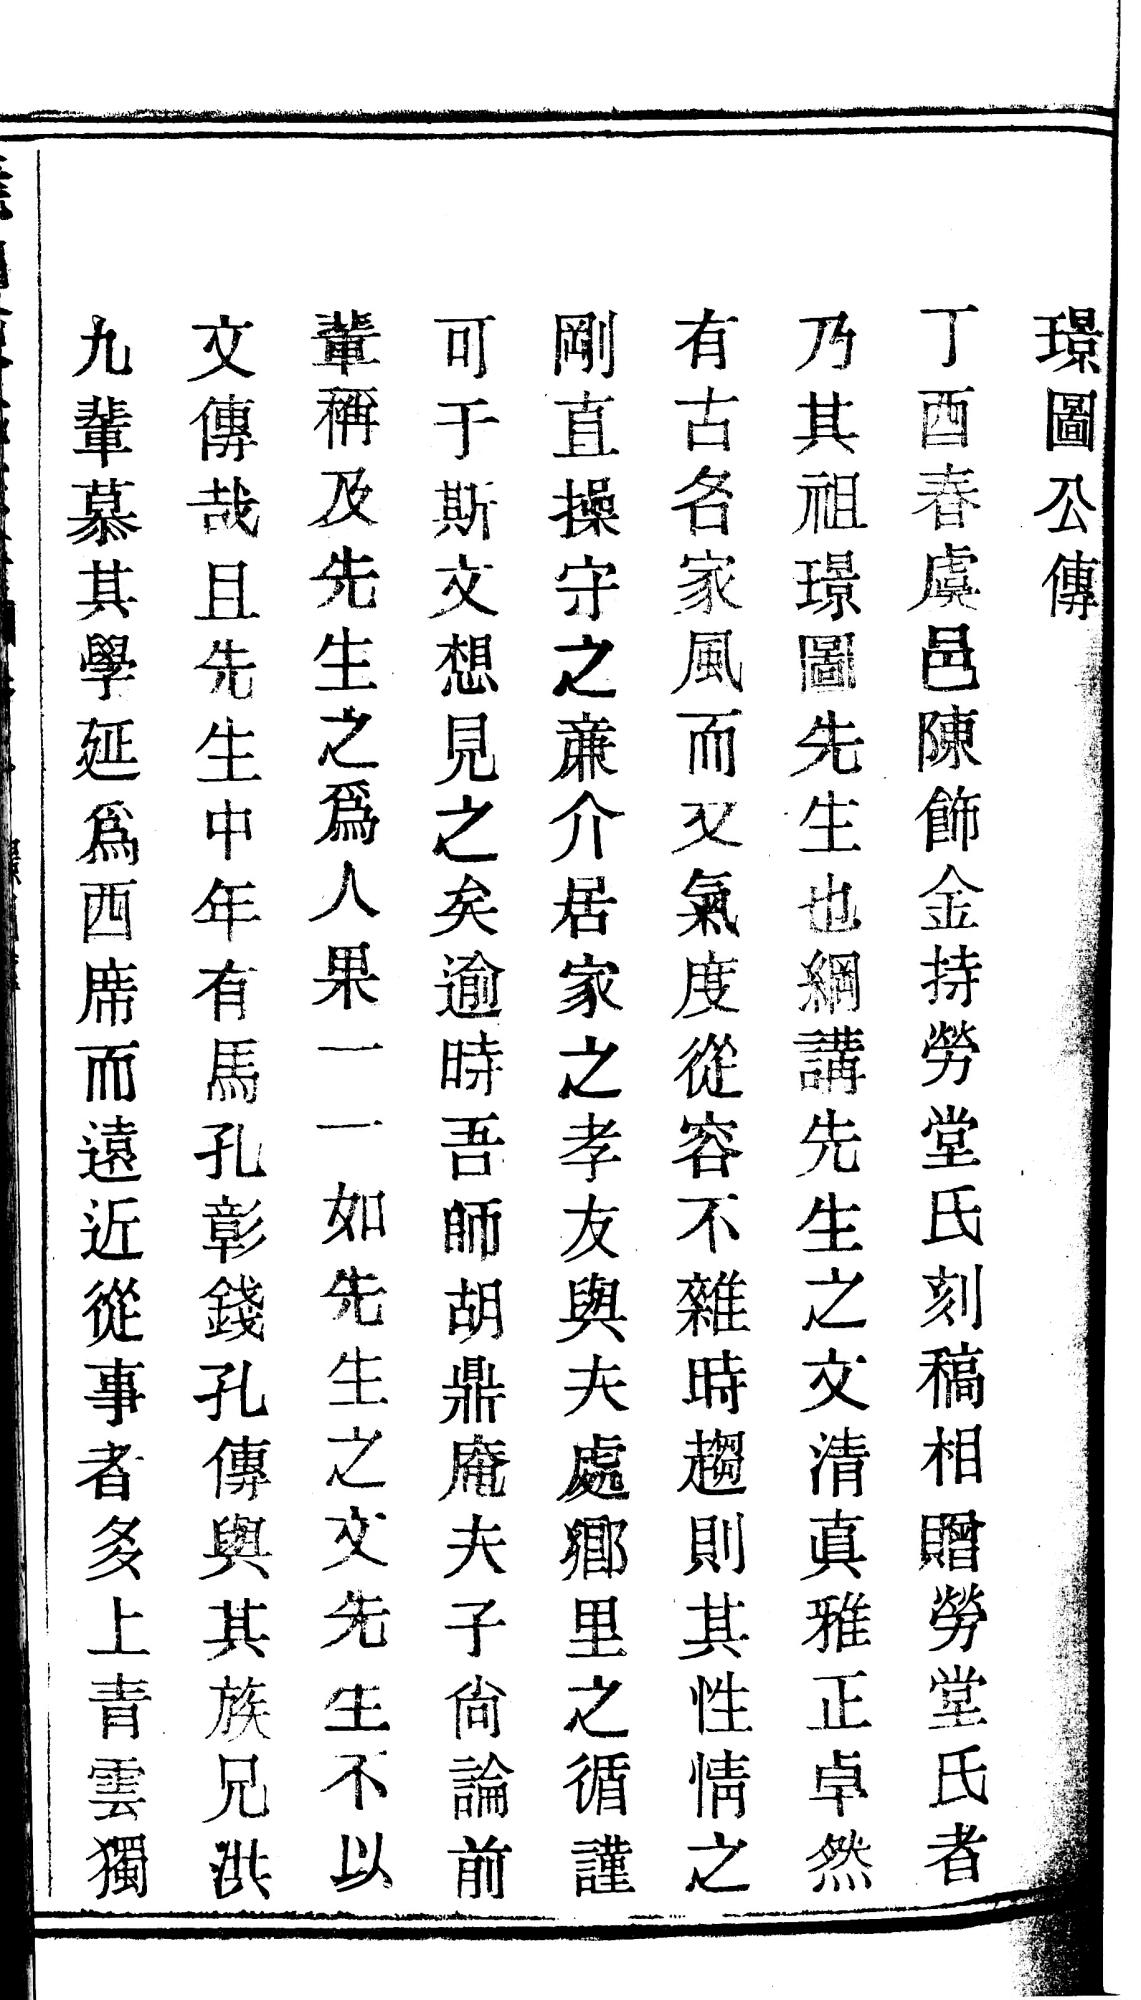 璟圖公傳
丁酉春虞邑陳飾金持勞堂氏刻稿相贈勞堂氏者
乃其祖璟圖先生也綱講先生之文清真雅正卓然
有古名家風而又氣度從容不雜時趨則其性情之
剛直操守之亷介居家之孝友與夫處鄉里之循謹
可于斯文想見之矣逾時吾師胡鼎庵夫子尙論前
輩稱及先生之爲人果一一如先生之文先生不以
文傳哉且先生中年有馬孔彰錢孔傳與其族兄洪
九輩慕其學延爲西席而遠近從事者多上青雲獨